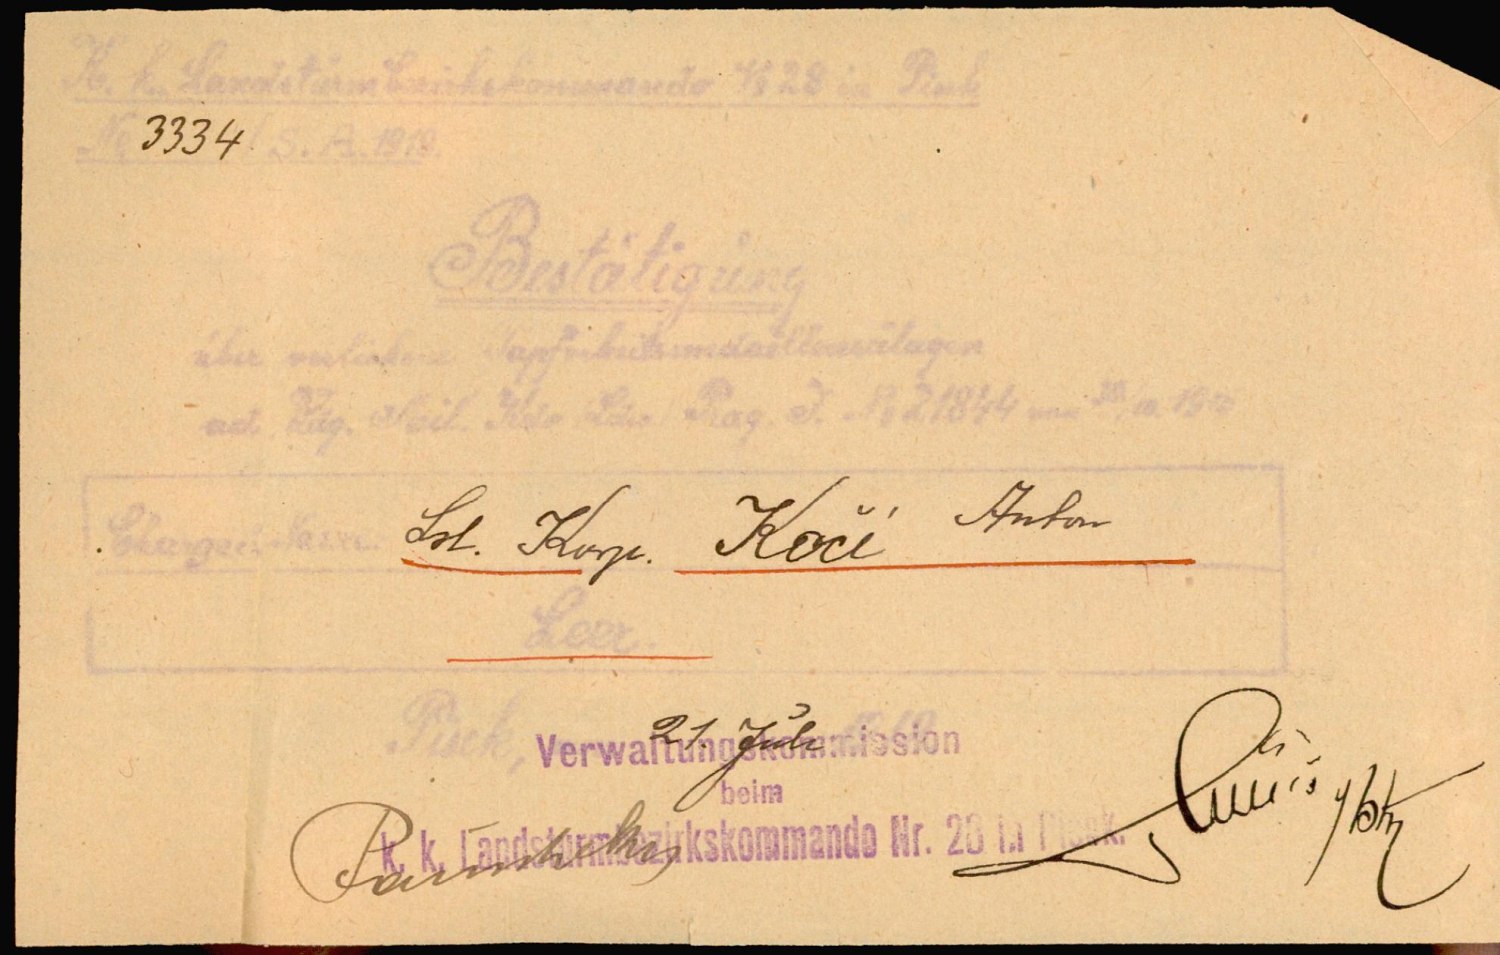 K. k. Landsturmbezirkskommando № 28 in Pisek
№ 3334 / S. A. 1918.
Bestätigung
über verliehene Tapferkeitsmedaillenzulagen
mit Zug. Mil. Kdo Prag. J. № 21844 1917
Charge: Name: Lst. Korp. Kočí Anton
Leer.
Pisek, 21. Juli 1918
Verwaltungskommission
beim
k. k. Landsturmbezirkskommando Nr. 28 in Pisek.